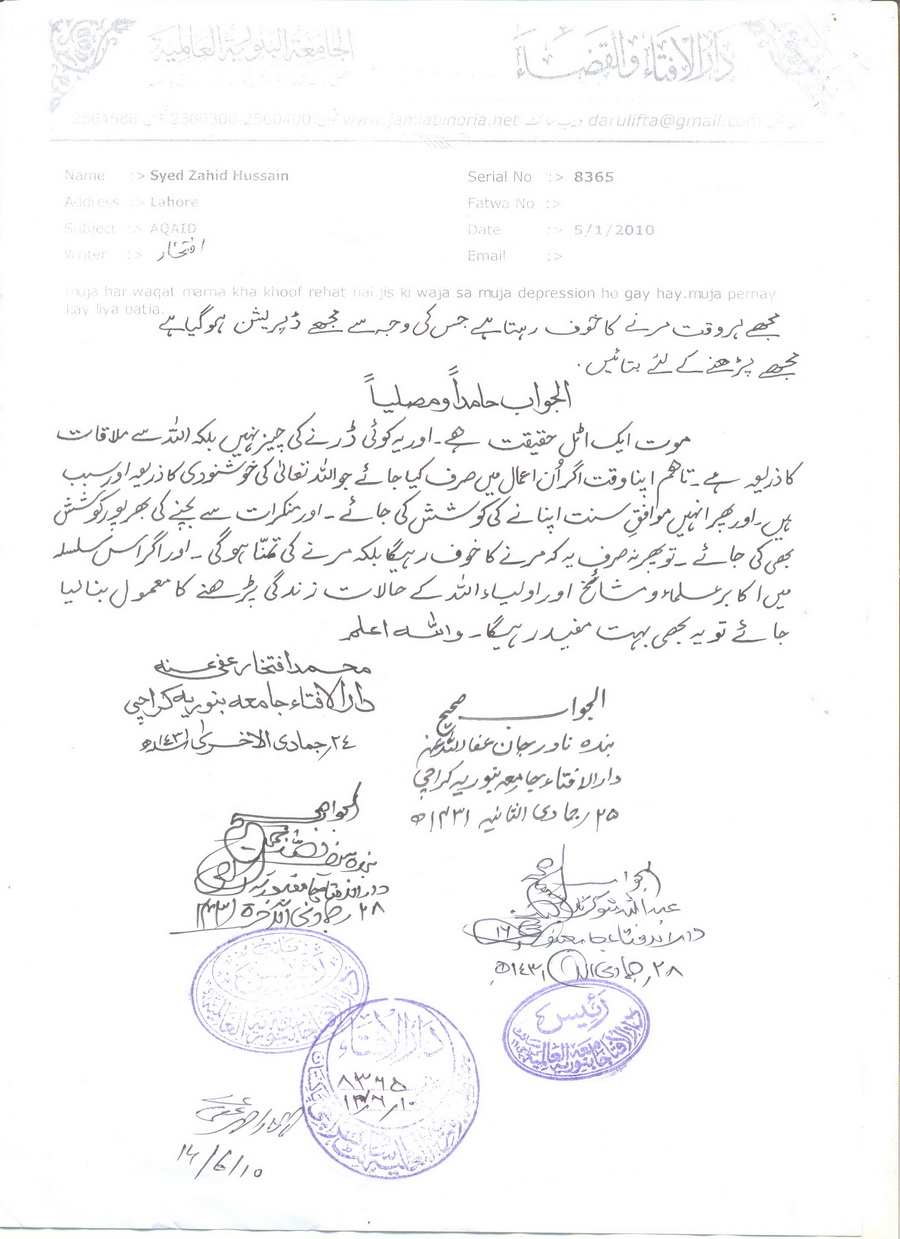 الجامعة البنورية العالمية
دار الافتاء والقضاء
2564586 2360300-2560400 www.jamiabinoria.net ویب سائٹ darulifta@gmail.com
Name :> Syed Zahid Hussain
Serial No :> 8365
Address :> Lahore
Fatwa No :>
Subject :> AQAID
Date :> 5/1/2010
Writer :> افتخار
Email :>
muja har waqat marna kha khoof rehat hai.jis ki waja sa muja depression ho gay hay.muja pernay
kay liya batia.
مجھے ہر وقت مرنے کا خوف رہتا ہے جس کی وجہ سے مجھے ڈپریشن ہوگیا ہے
مجھے پڑھنے کے لئے بتائیں.
الجواب حامداً ومصلیاً
موت ایک اٹل حقیقت ہے۔ اور یہ کوئی ڈرنے کی چیز نہیں بلکہ اللہ سے ملاقات
کا ذریعہ ہے۔ تاھم اپنا وقت اگر اُن اعمال میں صرف کیا جائے جو اللہ تعالیٰ کی خوشنودی کا ذریعہ اور سبب
ہیں۔ اور پھر انہیں موافقِ سنت اپنانے کی کوشش کی جائے۔ اور منکرات سے بچنے کی بھرپور کوشش
بھی کی جائے۔ تو پھر نہ صرف یہ کہ مرنے کا خوف رہیگا بلکہ مرنے کی تمنّا ہوگی۔ اور اگر اس سلسلہ
میں اکابر علماء و مشائخ اور اولیاء اللہ کے حالات زندگی پڑھنے کا معمول بنالیا
جائے تو یہ بھی بہت مفید رہیگا۔ واللہ اعلم
محمد افتخار عفی عنہ
دار الافتاء جامعہ بنوریہ کراچی
۲۴؍جمادی الاخری ۱۴۳۱ھ
الجواب صحیح
بندہ نادر جان عفا اللہ عنہ
دار الافتاء جامعہ بنوریہ کراچی
۲۵؍جمادی الثانیہ ۱۴۳۱ھ
الجواب صحیح
بندہ
دار الافتاء جامعہ بنوریہ
۲۸
الجواب صحیح
عبد اللہ شوکت
دار الافتاء جامعہ بنوریہ
۲۸؍جمادی ۱۴۳۱ھ
رئیس
دار الافتاء جامعہ بنوریہ العالمیہ
دار الافتاء
۸۳۶۵
14/6/10